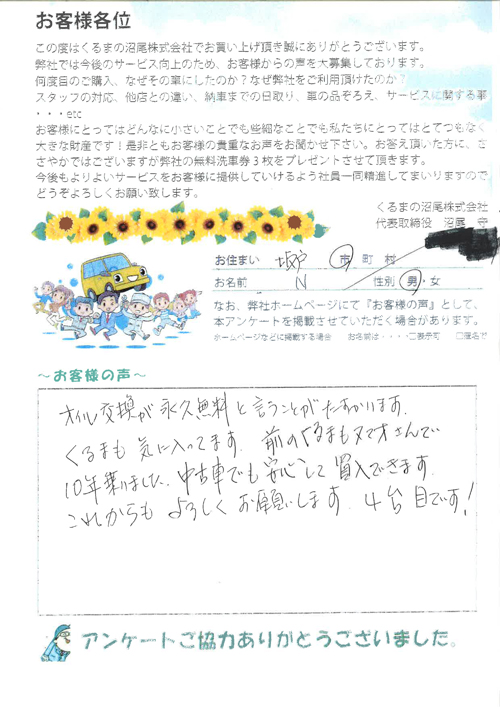 お客様各位
この度はくるまの沼尾株式会社でお買い上げ頂き誠にありがとうございます。
弊社では今後のサービス向上のため、お客様からの声を大募集しております。
何度目のご購入、なぜその車にしたのか？なぜ弊社をご利用頂けたのか？
スタッフの対応、他店との違い、納車までの日取り、車の品ぞろえ、サービスに関する事
・・・etc
お客様にとってはどんなに小さいことでも些細なことでも私たちにとってはとてつもなく
大きな財産です！是非ともお客様の貴重なお声をお聞かせ下さい。お答え頂いた方に、さ
さやかではございますが弊社の無料洗車券3枚をプレゼントさせて頂きます。
今後もよりよいサービスをお客様に提供していけるよう社員一同精進してまいりますので
どうぞよろしくお願い致します。
くるまの沼尾株式会社
代表取締役 沼尾 守
お住まい 坂戸 市 町 村
お名前 N 性別 男・女
なお、弊社ホームページにて『お客様の声』として、
本アンケートを掲載させていただく場合があります。
ホームページなどに掲載する場合 お名前は・・・・□表示可 □匿名で
～お客様の声～
オイル交換が永久無料と言うことがたすかります。
くるまも気に入ってます。前のくるまもヌマオさんで
10年乗りました。中古車でも安心して買入できます。
これからもよろしくお願いします。4台目です！
アンケートご協力ありがとうございました。